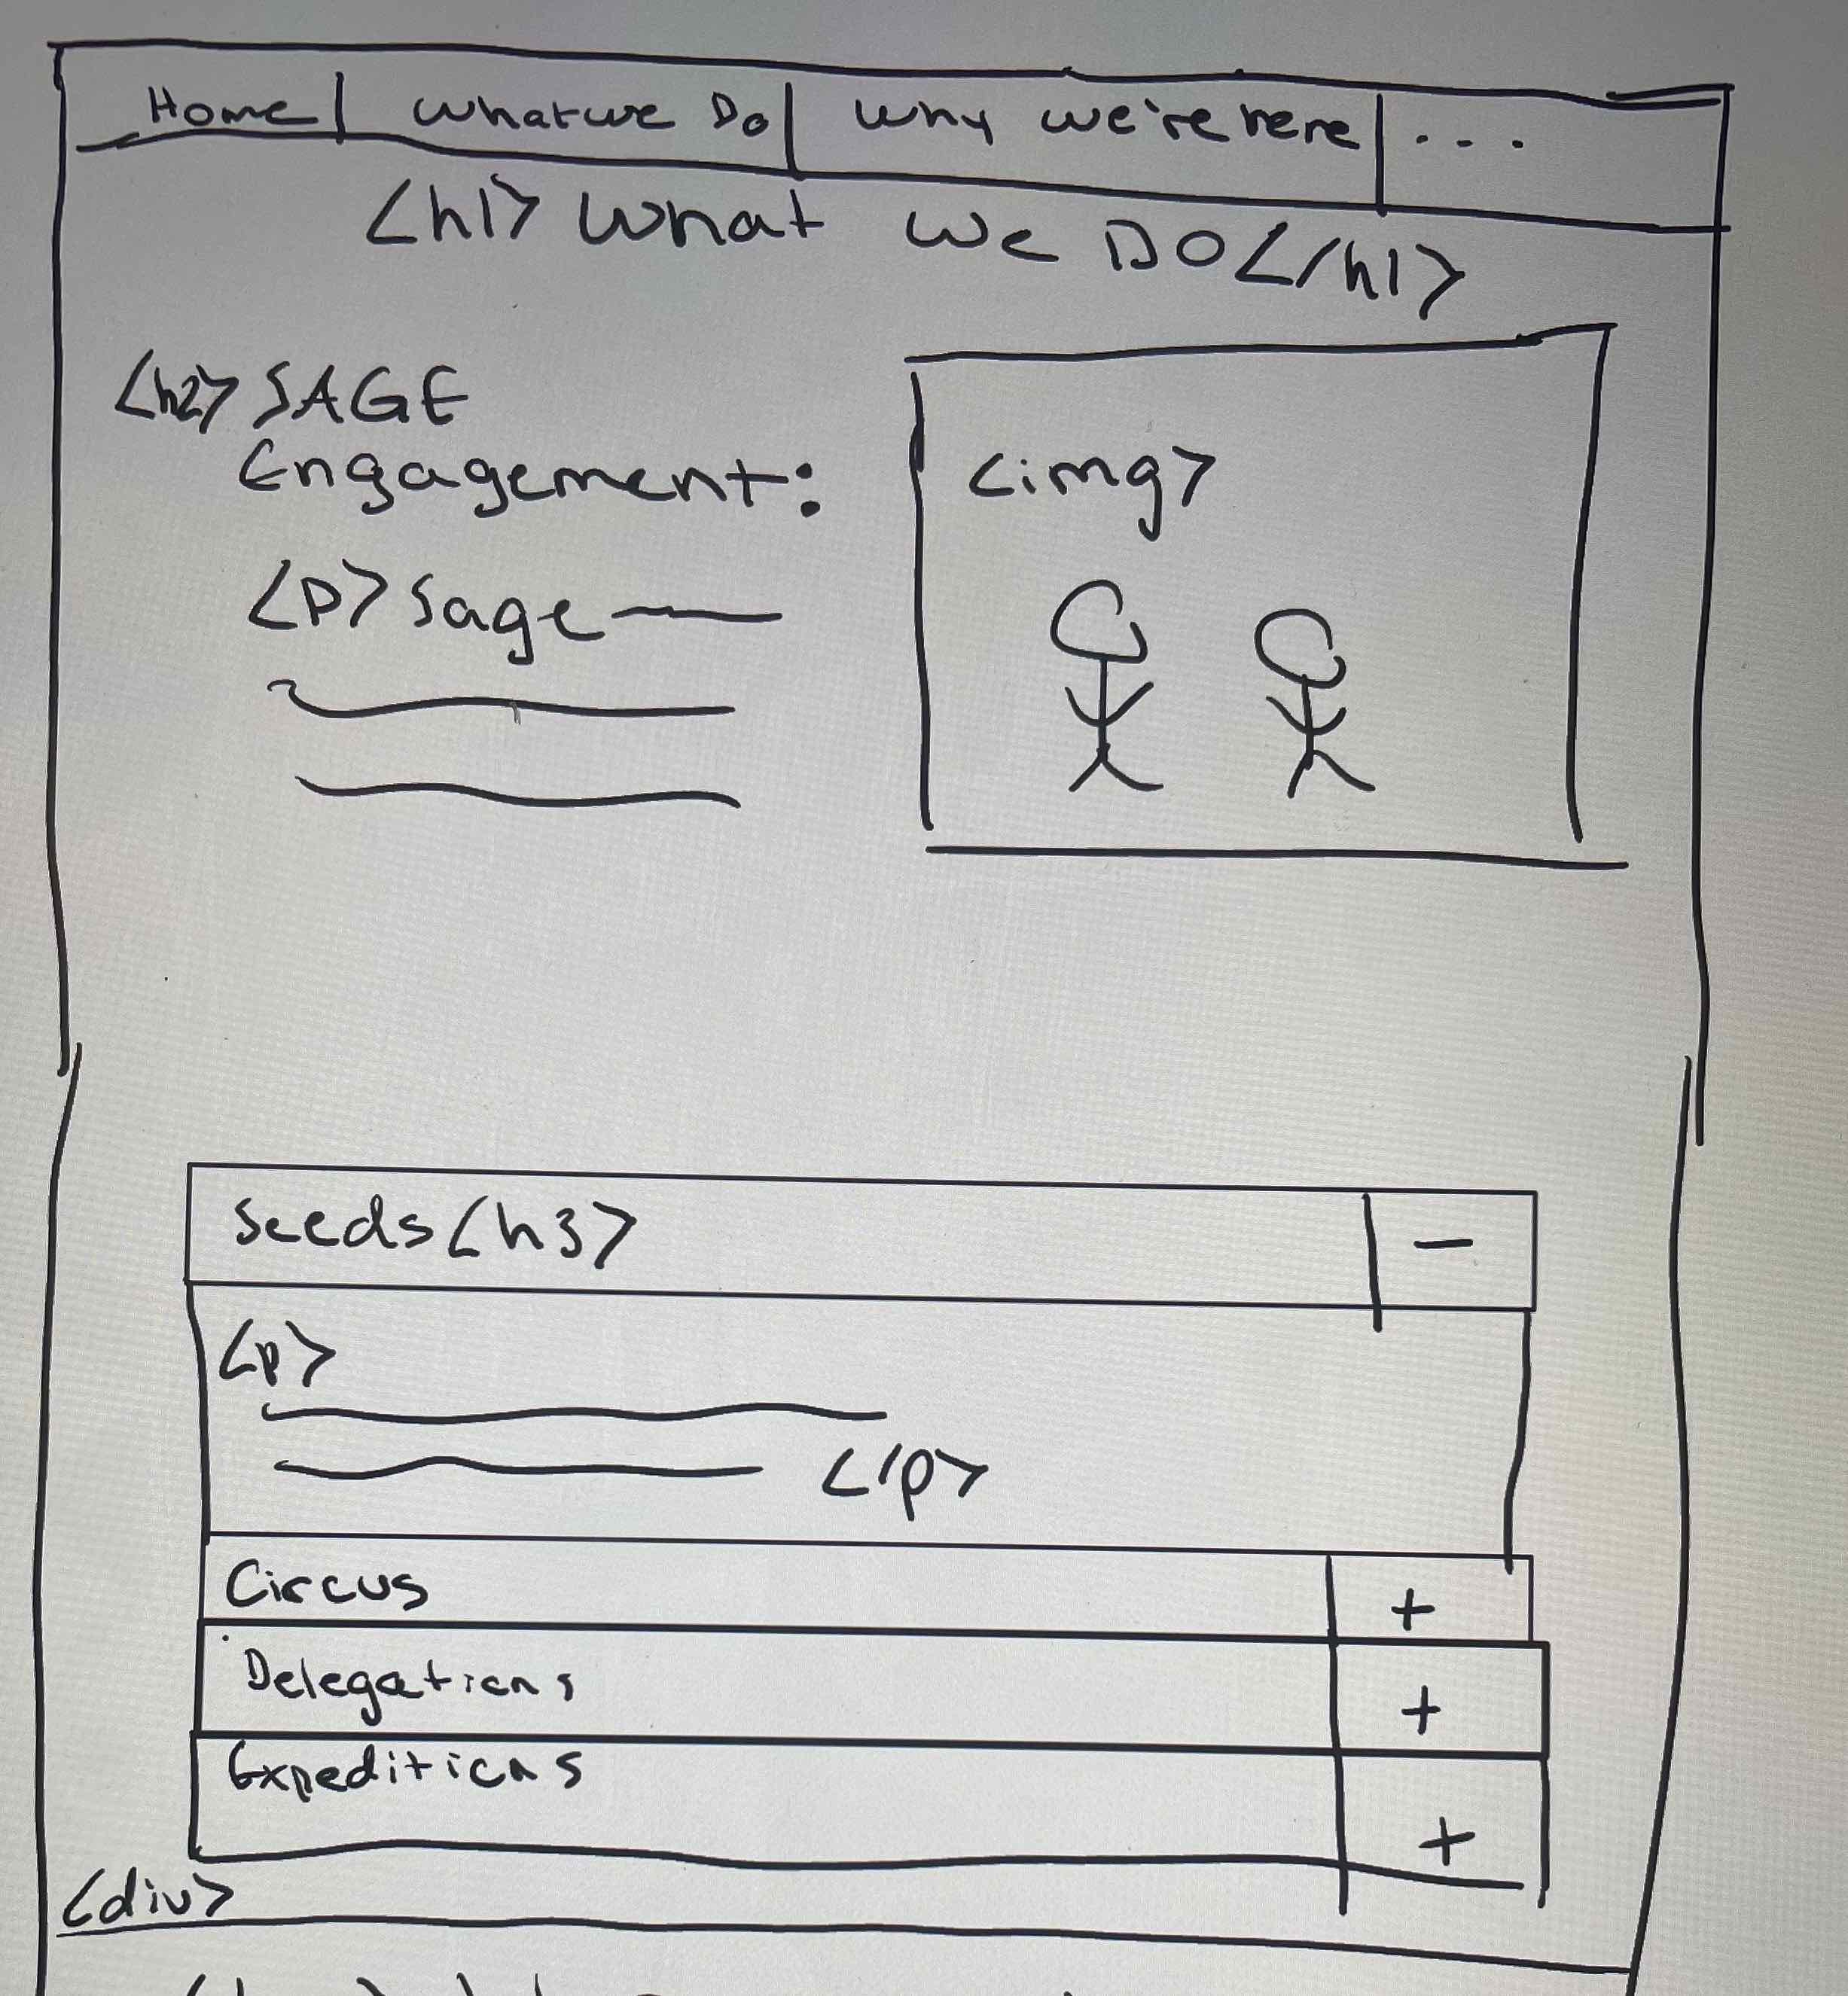 Home | What we Do | Why we're here | ...
<h1> What we DO </h1>
<h2> SAGE
Engagement:
<p> Sage
<img>
Seeds <h3> -
<p>
</p>
Circus +
Delegations +
Expeditions +
<div>